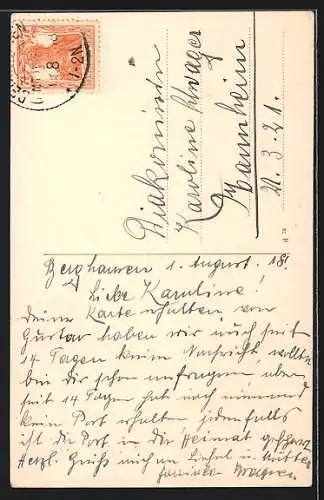 Diakonissin
Karoline Schwager
Mannheim
N. 3. 21.
Berghausen 1. August. 18.
Liebe Karoline!
Deine Karte erhalten von
Gustav haben wir auch seit
14 Tagen keine Nachricht, wollte
bei dir schon anfragen aber
seit 14 Tagen hat noch niemand
kein Post erhalten jedenfalls
ist die Post in die Heimat gesperrt
Herzl. Grüß